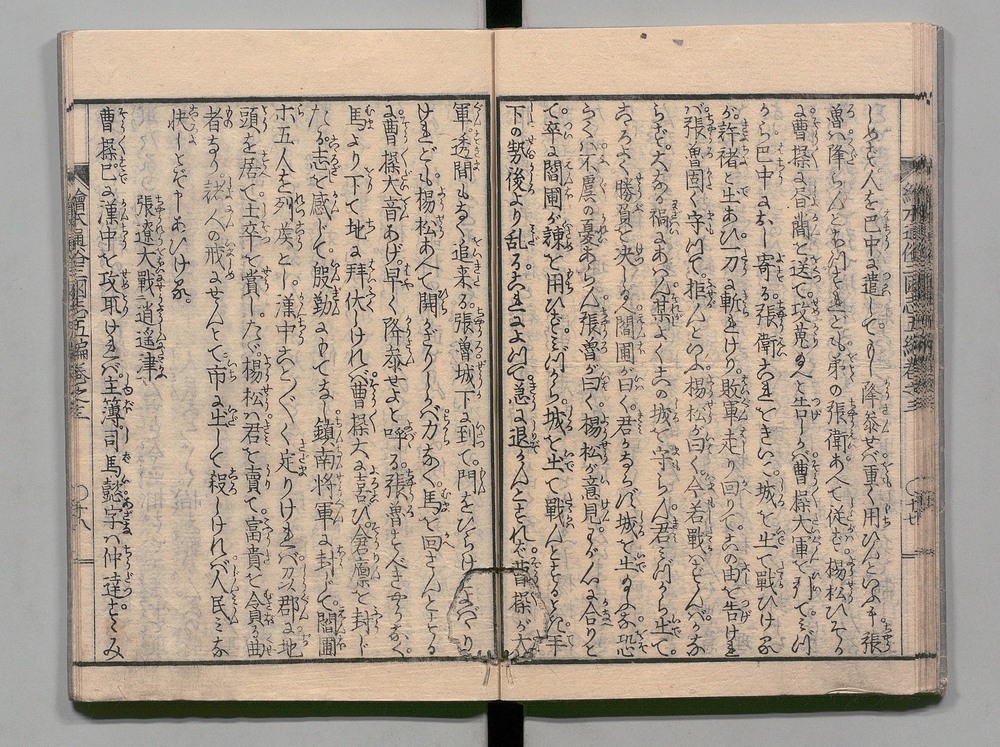 しめて人を巴中に遣していはし降参せバ重く用ひんといふ張
魯ハ降らんとおもへども弟の張衛あへて従ハず楊松ひそか
に曹操に書簡を送て攻給へと告しかバ曹操大軍を引てみづ
から巴中におし寄る張衛これをきいて城を出て戦ひけるが
許褚と出あひ一刀に斬れけり敗軍走り回りてこの由を告けれ
バ張魯固く守りて拒んといふ楊松が曰く今若戦ハせんバかな
らず大なる禍にあハん某よくこの城を守らん君みづから出て
こゝろよく勝負を決し給へ閻圃が曰く君かならず城を出給ふな恐
らくハ不慮の憂あらん張魯が曰く楊松が意見わが心に合りと
て卒に閻圃が諫を用ひずみづから城を出て戦んとするとき手
下の勢後より乱るこれによつて急に退かんとすれバ曹操が大
軍透間もなく追来る張魯城下に到て門をひらけとよバハり
けれども楊松あへて開かざりしかバ力なく馬を回さんとする
に曹操大音あげ早く降参せよと呼る張魯せんすべきやうなく
馬より下て地に拜伏しけれバ曹操大に喜び倉廩を封じ
たる志を感じて慇懃にもてなし鎮南将軍に封じ閻圃
ホ五人を列侯とし漢中ことごとく定りけれバ一郡に地
頭を居て士卒を賞したゞ楊松ハ君を賣て富貴を貪る曲
者なり諸人の戒にせんとて市に出して殺しけれバ人民みな
快しとぞ申あひける
張遼大戰逍遙津
曹操已に漢中を攻取けれバ主簿司馬懿字ハ仲達すゝみ
繪本通俗三國志五編巻之三
〇十七
繪本通俗三國志五編巻之三
〇十八